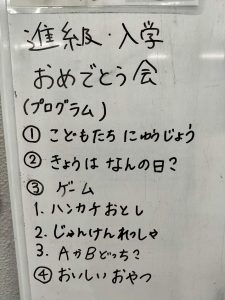 進級・入学
おめでとう会
(プログラム)
① こどもたち にゅうじょう
② きょうは なんの日?
③ ゲーム
1. ハンカチおとし
2. じゃんけんれっしゃ
3. AかBどっち?
④ おいしいおやつ